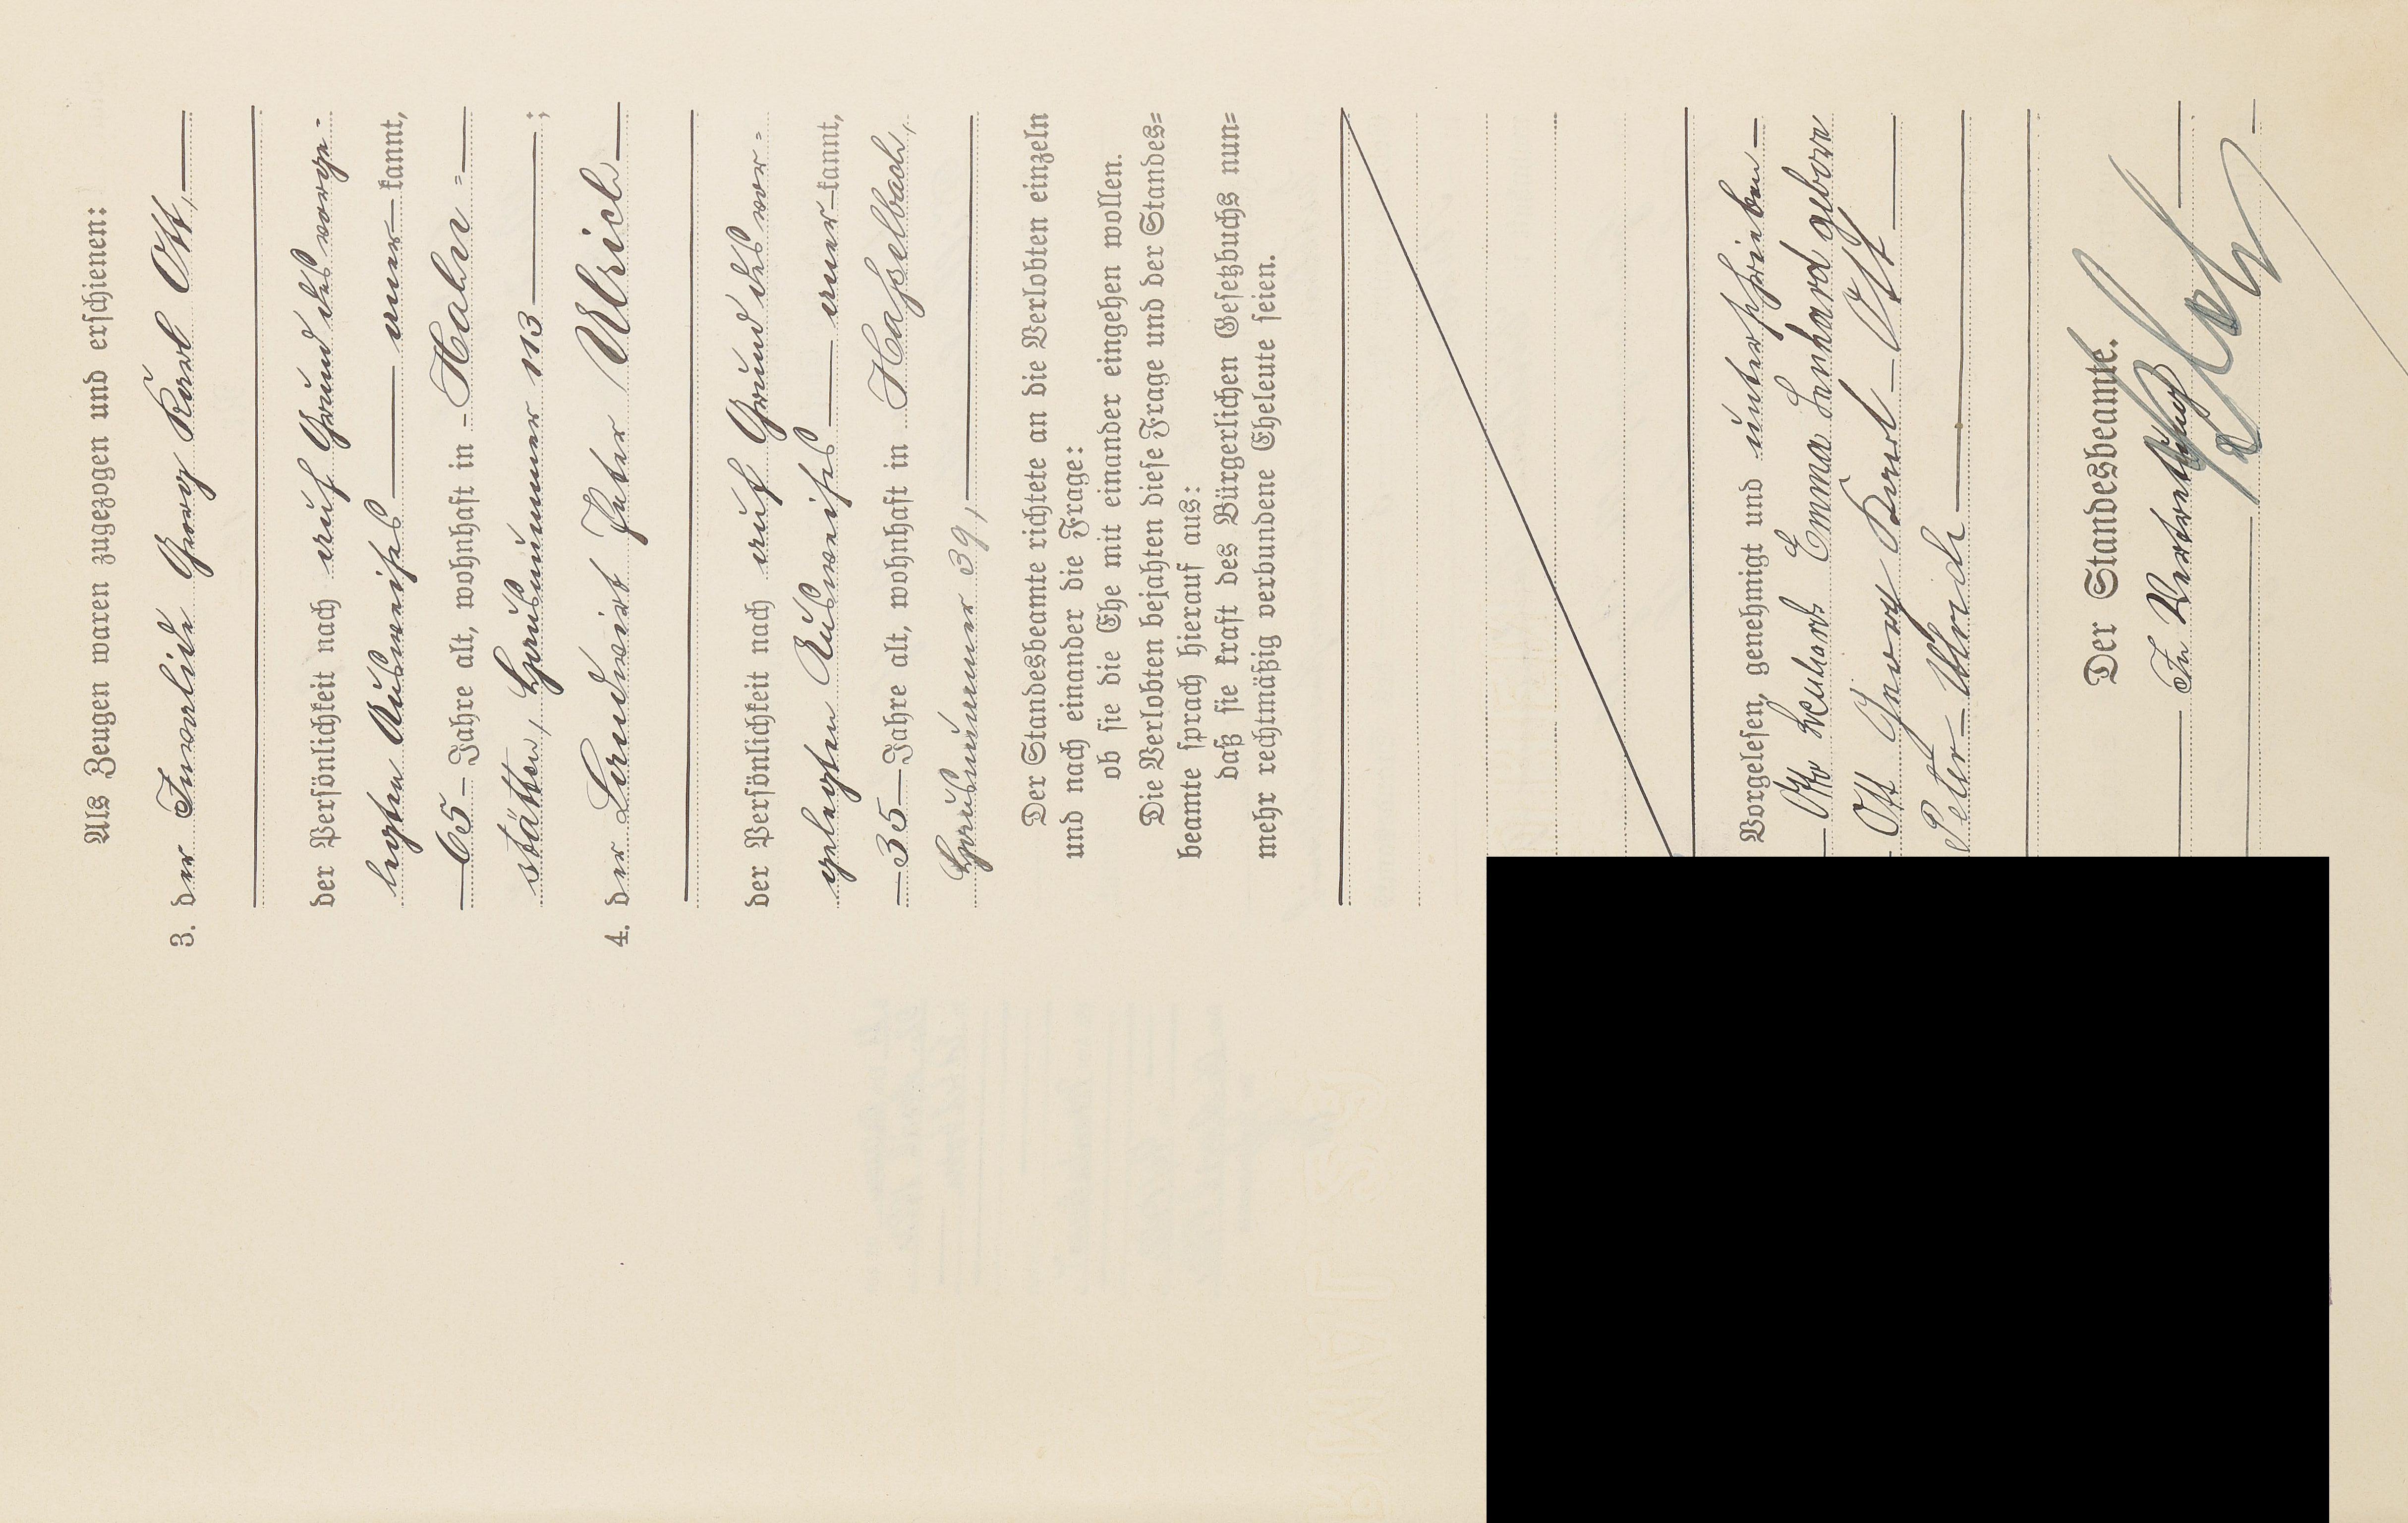 Als Zeugen waren zugezogen und erschienen:
3. der Invalide Georg Karl Ott,
der Persönlichkeit nach auf Grund des vorge-
legten Ausweises aner kannt,
65 Jahre alt, wohnhaft in Hahn=
stätten, Hausnummer 113 ;
4. der Landwirt Peter Ulrich
der Persönlichkeit nach auf Grund des vor=
gelegten Ausweises aner kannt,
35 Jahre alt, wohnhaft in Haßelbach,
Hausnummer 39,
Der Standesbeamte richtete an die Verlobten einzeln
und nach einander die Frage:
ob sie die Ehe mit einander eingehen wollen.
Die Verlobten bejahten diese Frage und der Standes=
beamte sprach hierauf aus:
daß sie kraft des Bürgerlichen Gesetzbuchs nun=
mehr rechtmäßig verbundene Eheleute seien.
Vorgelesen, genehmigt und unterschrieben
Otto Lenhard Emma Lenhard geborn
Ott Georg Karl Ott
Peter Ulrich
Der Standesbeamte.
In Vertretung